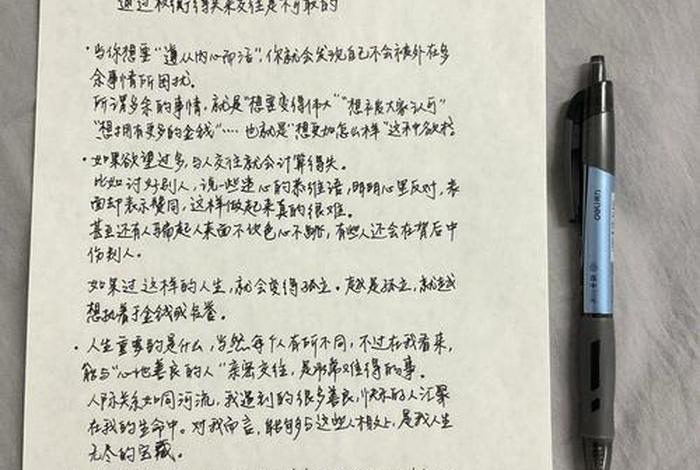 通过权衡得失来交往是不可取的
·当你想要“遵从内心而活”,你就会发现自己不会被外在多
余事情所困扰。
所谓多余的事情,就是“想要变得伟大”“想被大家认可”
“想拥有更多的金钱”…… 也就是“想更如怎么样”这种欲格
·如果欲望过多,与人交往就会计算得失。
比如讨好别人,说一些违心的恭维语,明明心里反对,表
面却表示赞同,这样做起来真的很难。
甚至还有人骗起人来面不改色心不跳,有些人还会在背后中
伤别人。
如果过这样的人生,就会变得孤立。越是孤立,就越
想执着于金钱或名誉。
·人生重要的是什么,当然每个人有所不同,不过在我看来,
能与“心地善良的人”亲密交往,是非常难得的事。
人际关系如同河流,我遇到的很多善良,快乐的人汇聚
在我的生命中。对我而言,能够与这些人相交,是我人生
无尽的宝藏。
deli